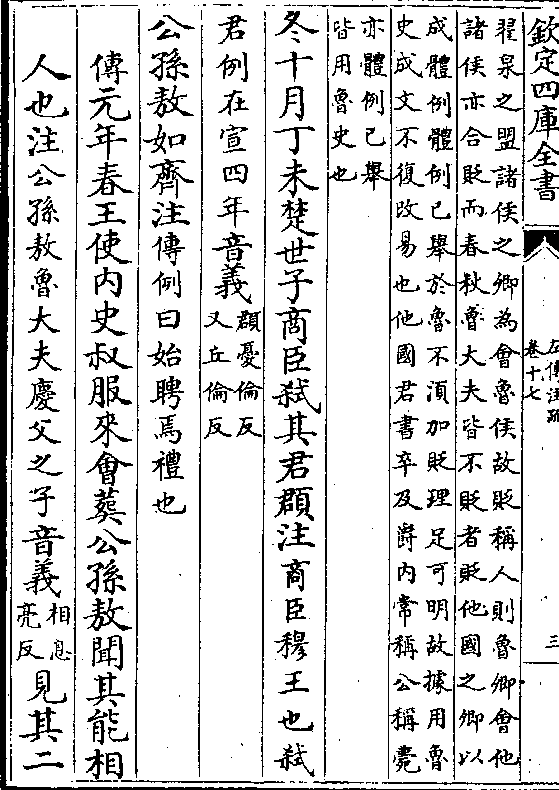 欽定四庫全書
左傳注疏
卷十七
三
翟泉之盟諸侯之卿為會魯侯故貶稱人則魯卿會他
諸侯亦合貶而春秋魯大夫皆不貶者貶他國之卿以
成體例體例已舉於魯不湏加貶理足可明故據用魯
史成文不復改易也他國君書卒及爵内常稱公稱薨
亦體例已舉
皆用魯史也
冬十月丁未楚世子商臣弑其君頵注商臣穆王也弑
君例在宣四年音義頵憂倫反
又丘倫反
公孫敖如齊注傳例曰始聘焉禮也
傳元年春王使内史叔服來會葬公孫敖聞其能相
人也注公孫敖魯大夫慶父之子音義相息
亮反見其二